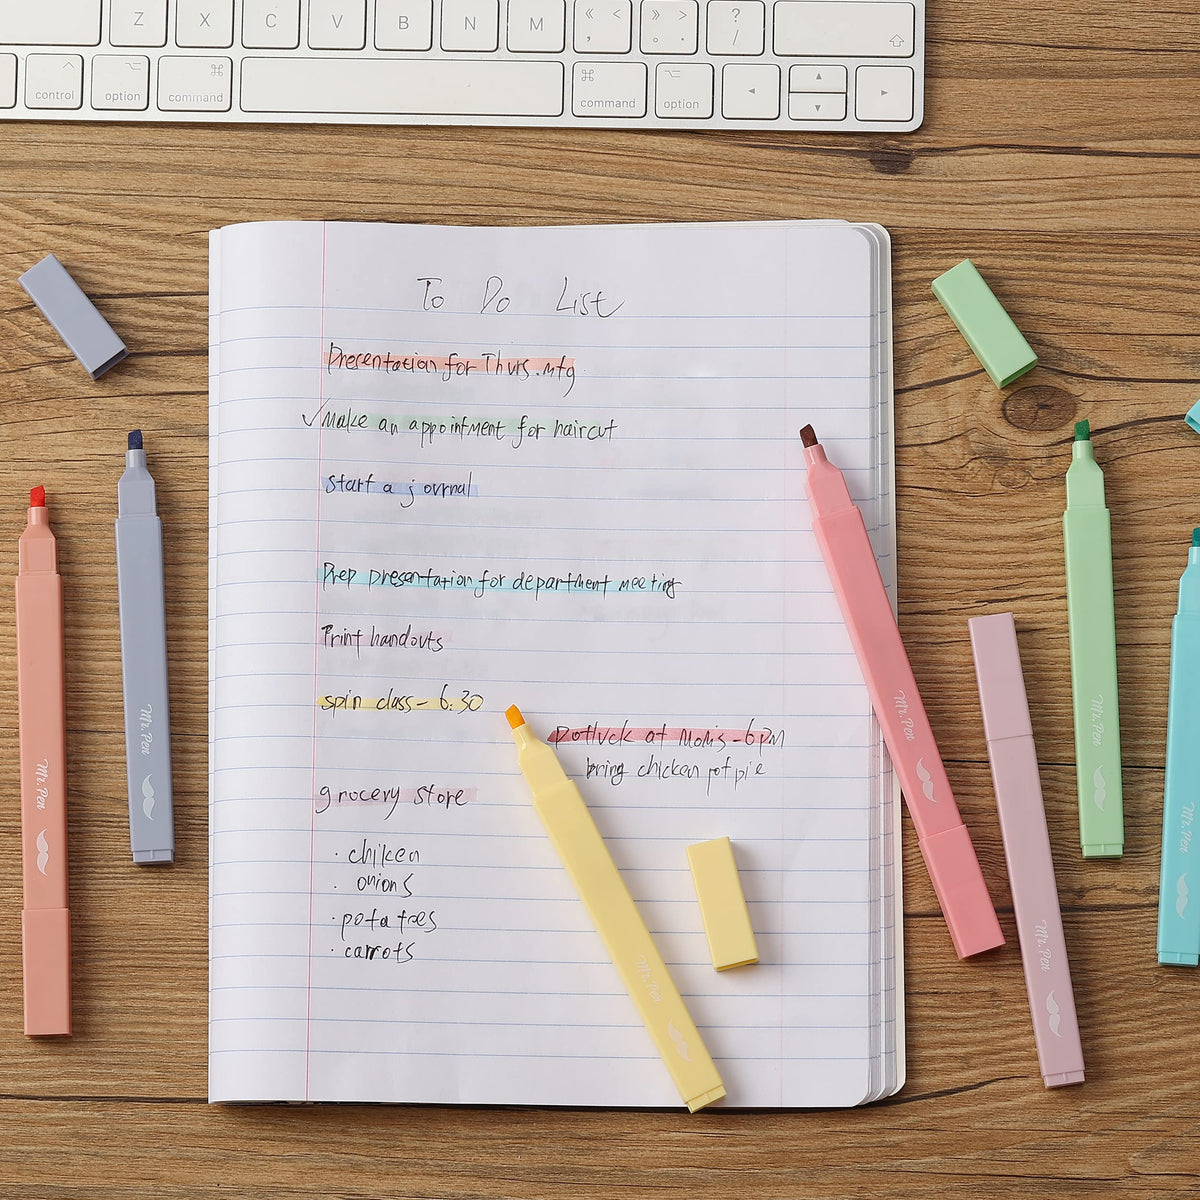 Z X C V B N M « < , » > . ? /
control option command command option
To Do List
Presentation for Thurs. mtg
✓Make an appointment for haircut
Start a journal
Prep presentation for department meeting
Print handouts
spin class - 6:30
potluck at Mom's - 6pm
bring chicken pot pie
grocery store
· chiken
· onions
· potatoes
· carrots
Mr. Pen
Mr. Pen
Mr. Pen
Mr. Pen
Mr. Pen
Mr. Pen
Mr. Pen